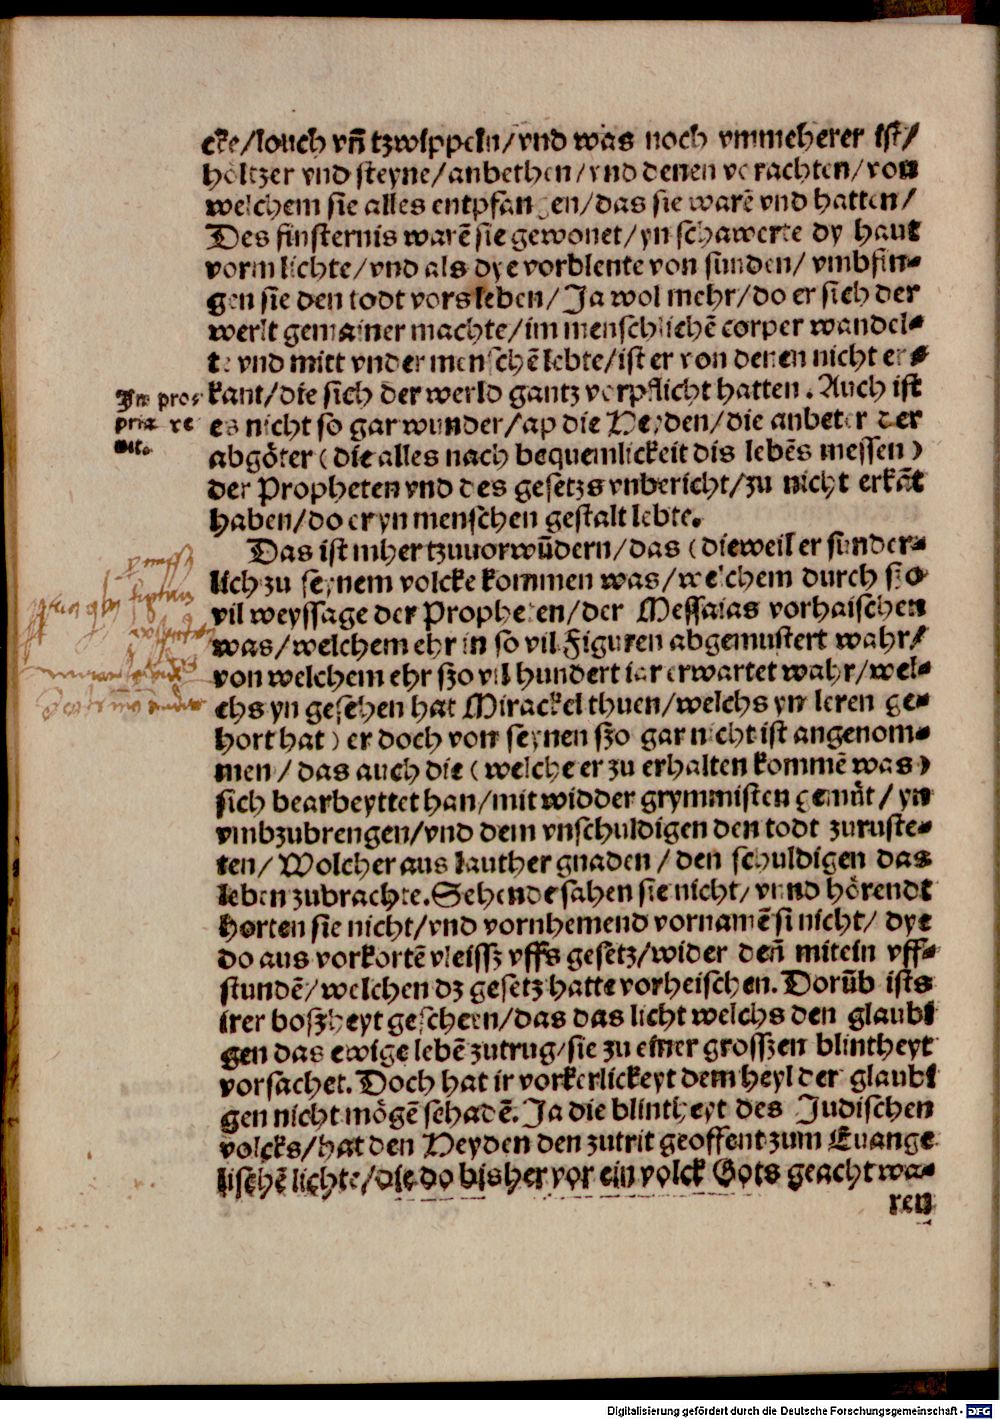 cke/louch vñ tzwippeln/vnd was noch vmmeherer ist/
höltzer vnd steyne/anbethen/vnd denen vorachten/von
welchem sie alles entpfangen/das sie warē vnd hatten/
Des finsternis warē sie gewonet/yn schawerte dy haut
vorm lichte/vnd als dye vorblente von sunden/vmbfin-
gen sie den todt vors leben/Ja wol mehr/do er sich der
werlt gemainer machte/im menschlichē corper wandel-
te vnd mitt vnder menschē lebte/ist er von denen nicht er-
kant/die sich der werld gantz vorpflicht hatten. Auch ist
es nicht so gar wunder/ap die Heyden/die anbeter der
abgöter (die alles nach bequemlickeit dis lebēs messen)
der Propheten vnd des gesetzs vnbericht/zu nicht erkāt
haben/do er yn menschen gestalt lebte.
In pro-
pria ve
nit.
Das ist mher tzuuorwūdern/das (dieweil er sunder-
lich zu seynem volcke kommen was/welchem durch szo
vil weyssage der Propheten/der Messaias vorhaischen
was/welchem ehr in so vil Figuren abgemustert wahr/
von welchem ehr szo vil hundert iar erwartet wahr/wel-
chs yn gesehen hat Mirackel thuen/welchs yn leren ge-
hort hat) er doch von seynen szo gar nicht ist angenom-
men/das auch die (welche er zu erhalten kommē was)
sich bearbeyttet han/mit widder grymmisten gemüt/yn
vmbzubrengen/vnd dem vnschuldigen den todt zuruste-
ten/Wolcher aus lauther gnaden/den schuldigen das
leben zubrachte. Sehende sahen sie nicht/vnnd hörendt
horten sie nicht/vnd vornhemend vornamē si nicht/dye
do aus vorkortē vleissz vffs gesetz/wider den̄ mitein vff-
stundē/welchen dz gesetz hatte vorheischen. Dorūb ists
irer boszheyt gescheen/das das licht welchs den glaubi
gen das ewige lebē zutrug/sie zu einer grosszen blintheyt
vorsachet. Doch hat ir vorkerlickeyt dem heyl der glaubi
gen nicht mögē schadē. Ja die blintheyt des Judischen
volcks/hat den Heyden den zutrit geoffent zum Euange
lischē lichte/die do bisher vor ein volck Gots geacht wa-
ren
Digitalisierung gefördert durch die Deutsche Forschungsgemeinschaft - DFG